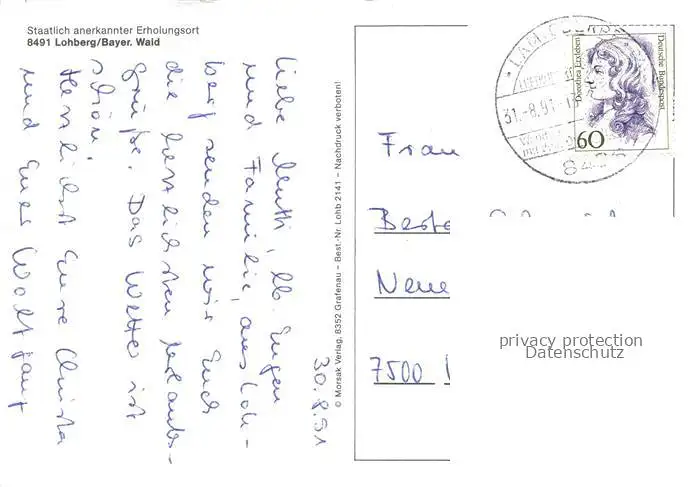 Staatlich anerkannter Erholungsort
8491 Lohberg/Bayer. Wald
30.8.91
Liebe Mutti, lb. Eugen
und Familie, aus Loh-
berg senden wir Euch
die herzlichsten Urlaubs-
grüße. Das Wetter ist
schön.
Herzlichst Eure Christa
und Euer Wolfgang
© Morsak Verlag, 8352 Grafenau – Best.-Nr. Lohb 2141 – Nachdruck verboten!
LAM
31.-8.91
Dorothea Erxleben
Deutsche Bundespost
60
Frau
Neue
7500
privacy protection
Datenschutz